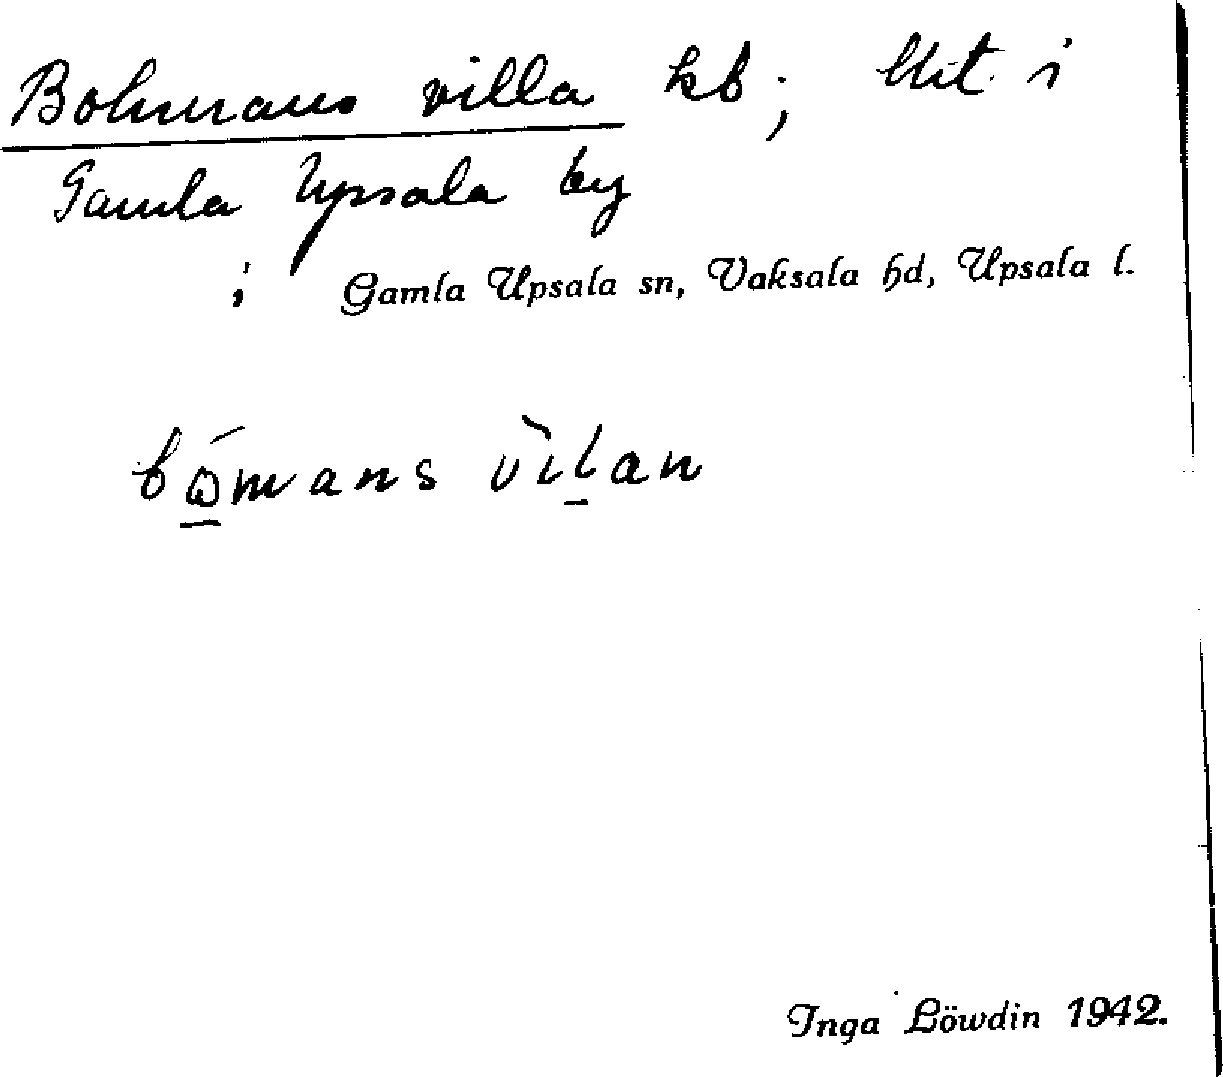 Bohmans villa kb; lht i
Gamla Upsala by
i Gamla Upsala sn, Vaksala hd, Upsala l.
bömans vilan
Inga Löwdin 1942.